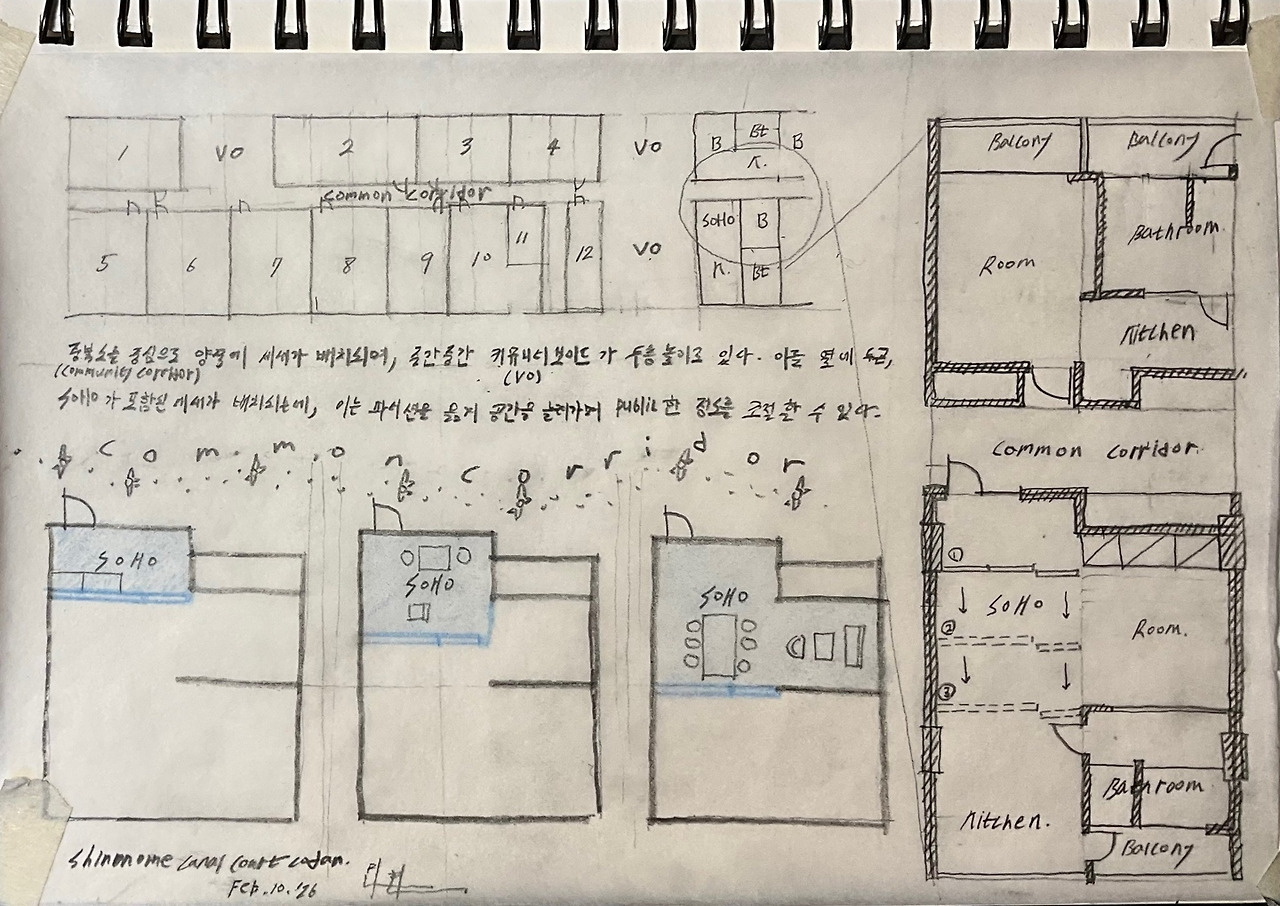 1 VO 2 3 4 VO
B Bt B
K.
Common Corridor
5 6 7 8 9 10 11 12 VO
SOHO B
K. Bt
중복도를 중심으로 양쪽에 세세가 배치되며, 중간중간 커뮤니티보이드가 두층높이로 있다.
(Community Corridor) (VO)
SOHO가 포함된 세세가 배치되는데, 이는 파시션을 옮겨 공간을 늘려가며 public한 정도를 조절할 수 있다.
Common Corridor
SOHO
SOHO
SOHO
Shinonome Canal Court Codan.
Feb.10.'26
Balcony Balcony
Bathroom.
Room
Kitchen
Common Corridor.
①
SOHO
②
Room.
③
Bathroom
Kitchen.
Balcony